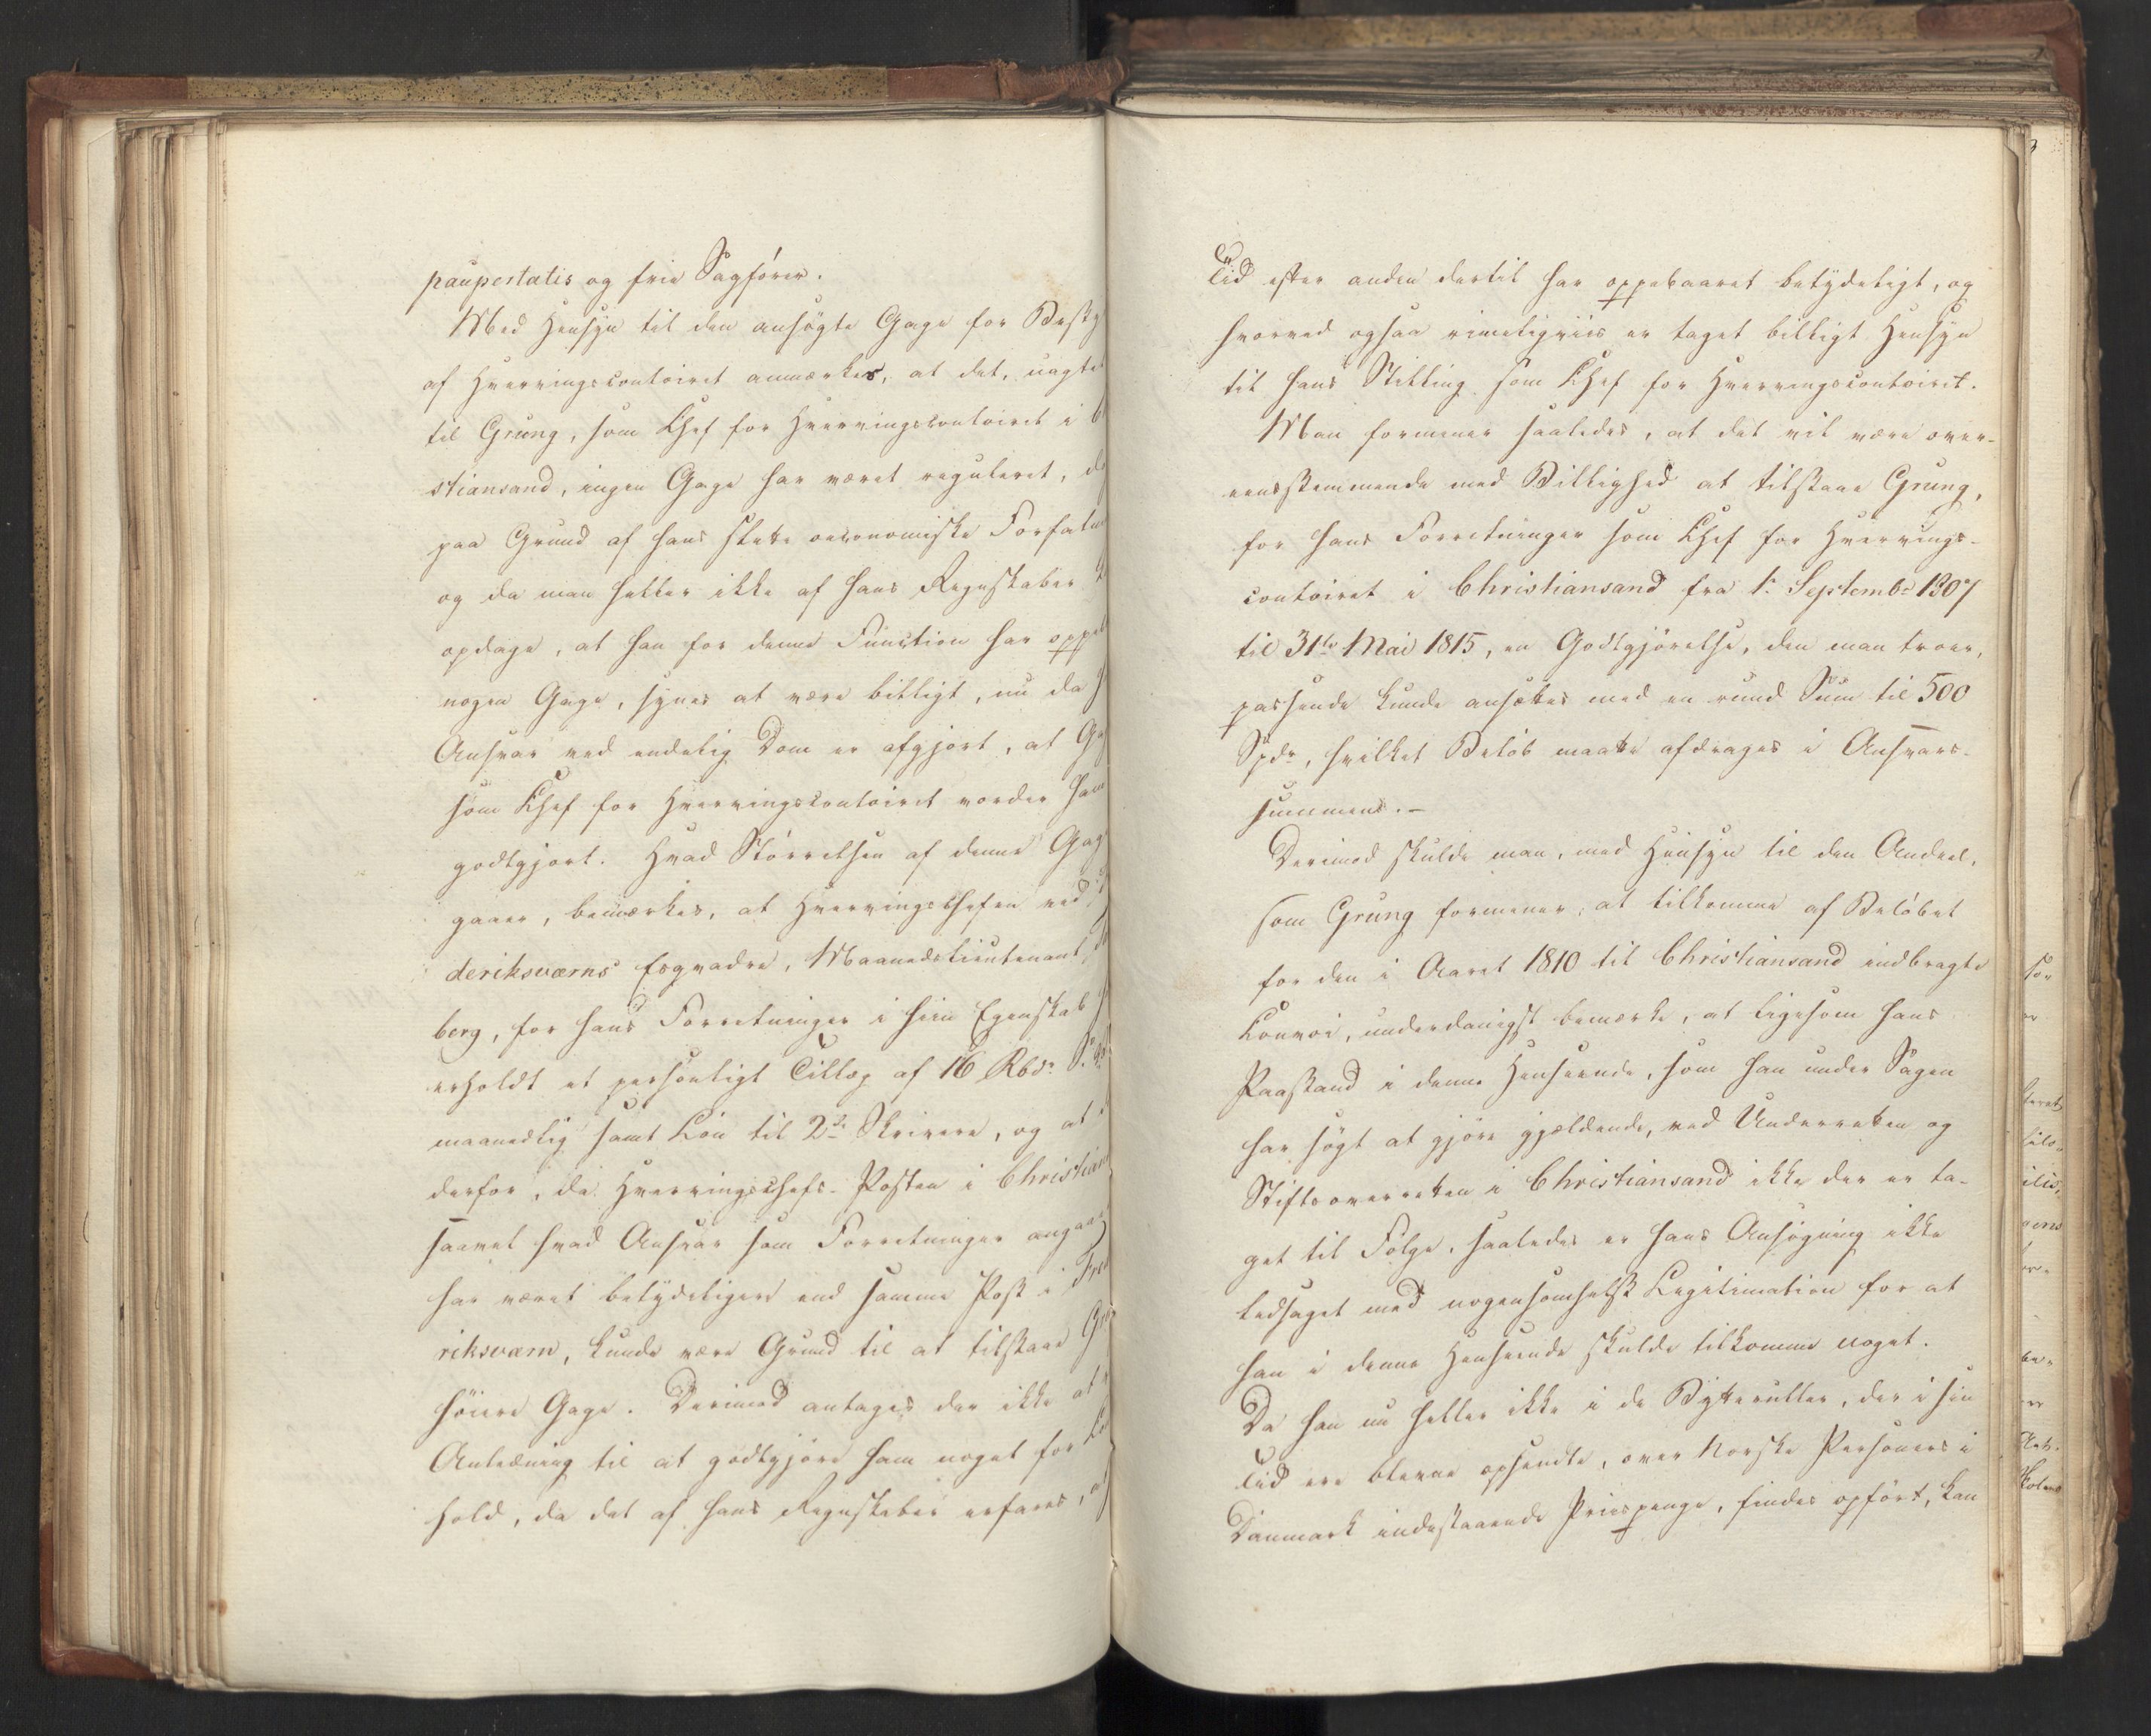 paupertatis og frie Sagfører.
Med Hensyn til den ansøgte Gage for Besty
af Hvervingscontoiret anmærkes, at det, uagtet
til Grung, som Chef for Hvervingscontoiret i C
stiansand, ingen Gage har været reguleret, d
paa Grund af hans slette oeconomiske Forfatn
og da man heller ikke af hans Regnskaber
opdage, at han for denne Function har oppeb
nogen Gage, synes at være billigt, nu da h
Ansvar ved endelig Dom er afgjort, at Gag
som Chef for Hvervingscontoiret vorder ham
godtgjort. Hvad Størrelsen af denne Gag
gaaer, bemærkes, at Hvervingschefen ved
deriksværns Esqvadre, Maanedslieutenant
berg, for hans Forretninger i hiin Egenskab h
erholdt et personligt Tillæg af 16 Rbdr S.
maanedlig samt Løn til 2de Skrivere, og at
derfor, da Hvervingschefs-Posten i Christian
saavel hvad Ansvar som Forretninger angaaer
har været betydeligere end samme Post i Fred
riksværn, kunde være Grund til at tilstaae Gr
høiere Gage. Derimod antages der ikke at
Anledning til at godtgjøre ham noget for Co
hold, da det af hans Regnskaber erfares, at
Tid efter anden dertil har oppebaaret betydeligt, og
hvorved ogsaa rimeligviis er taget billigt Hensyn
til hans Stilling som Chef for Hvervingscontoiret.
Man formener saaledes, at det vil være over-
eensstemmende med Billighed at tilstaae Grung,
for hans Forretninger som Chef for Hvervings-
contoiret i Christiansand fra 1. Septembr 1807
til 31te Mai 1815, en Godtgjørelse, den man troer,
passende kunde ansættes med en rund Sum til 500
Spdr, hvilket Beløb maatte afdrages i Ansvars-
summens.-
Derimod skulde man, med Hensyn til den Andeel,
som Grung formener, at tilkomme af Beløbet
for den i Aaret 1810 til Christiansand indbragte
Convoi, underdanigst bemærke, at ligesom hans
Paastand i denne Henseende, som han under Sagen
har søgt at gjøre gjældende, ved Underretten og
Stiftsoverretten i Christiansand ikke der er ta-
get til Følge, saaledes er hans Ansøgning ikke
ledsaget med nogensomhelst Legitimation for at
han i denne Henseende skulde tilkomme noget.
Da han nu heller ikke i de Bytteruller, der i sin
Tid ere blevne opsendte, over Norske Personers i
Danmark indestaaende Priispenge, findes opført, kan